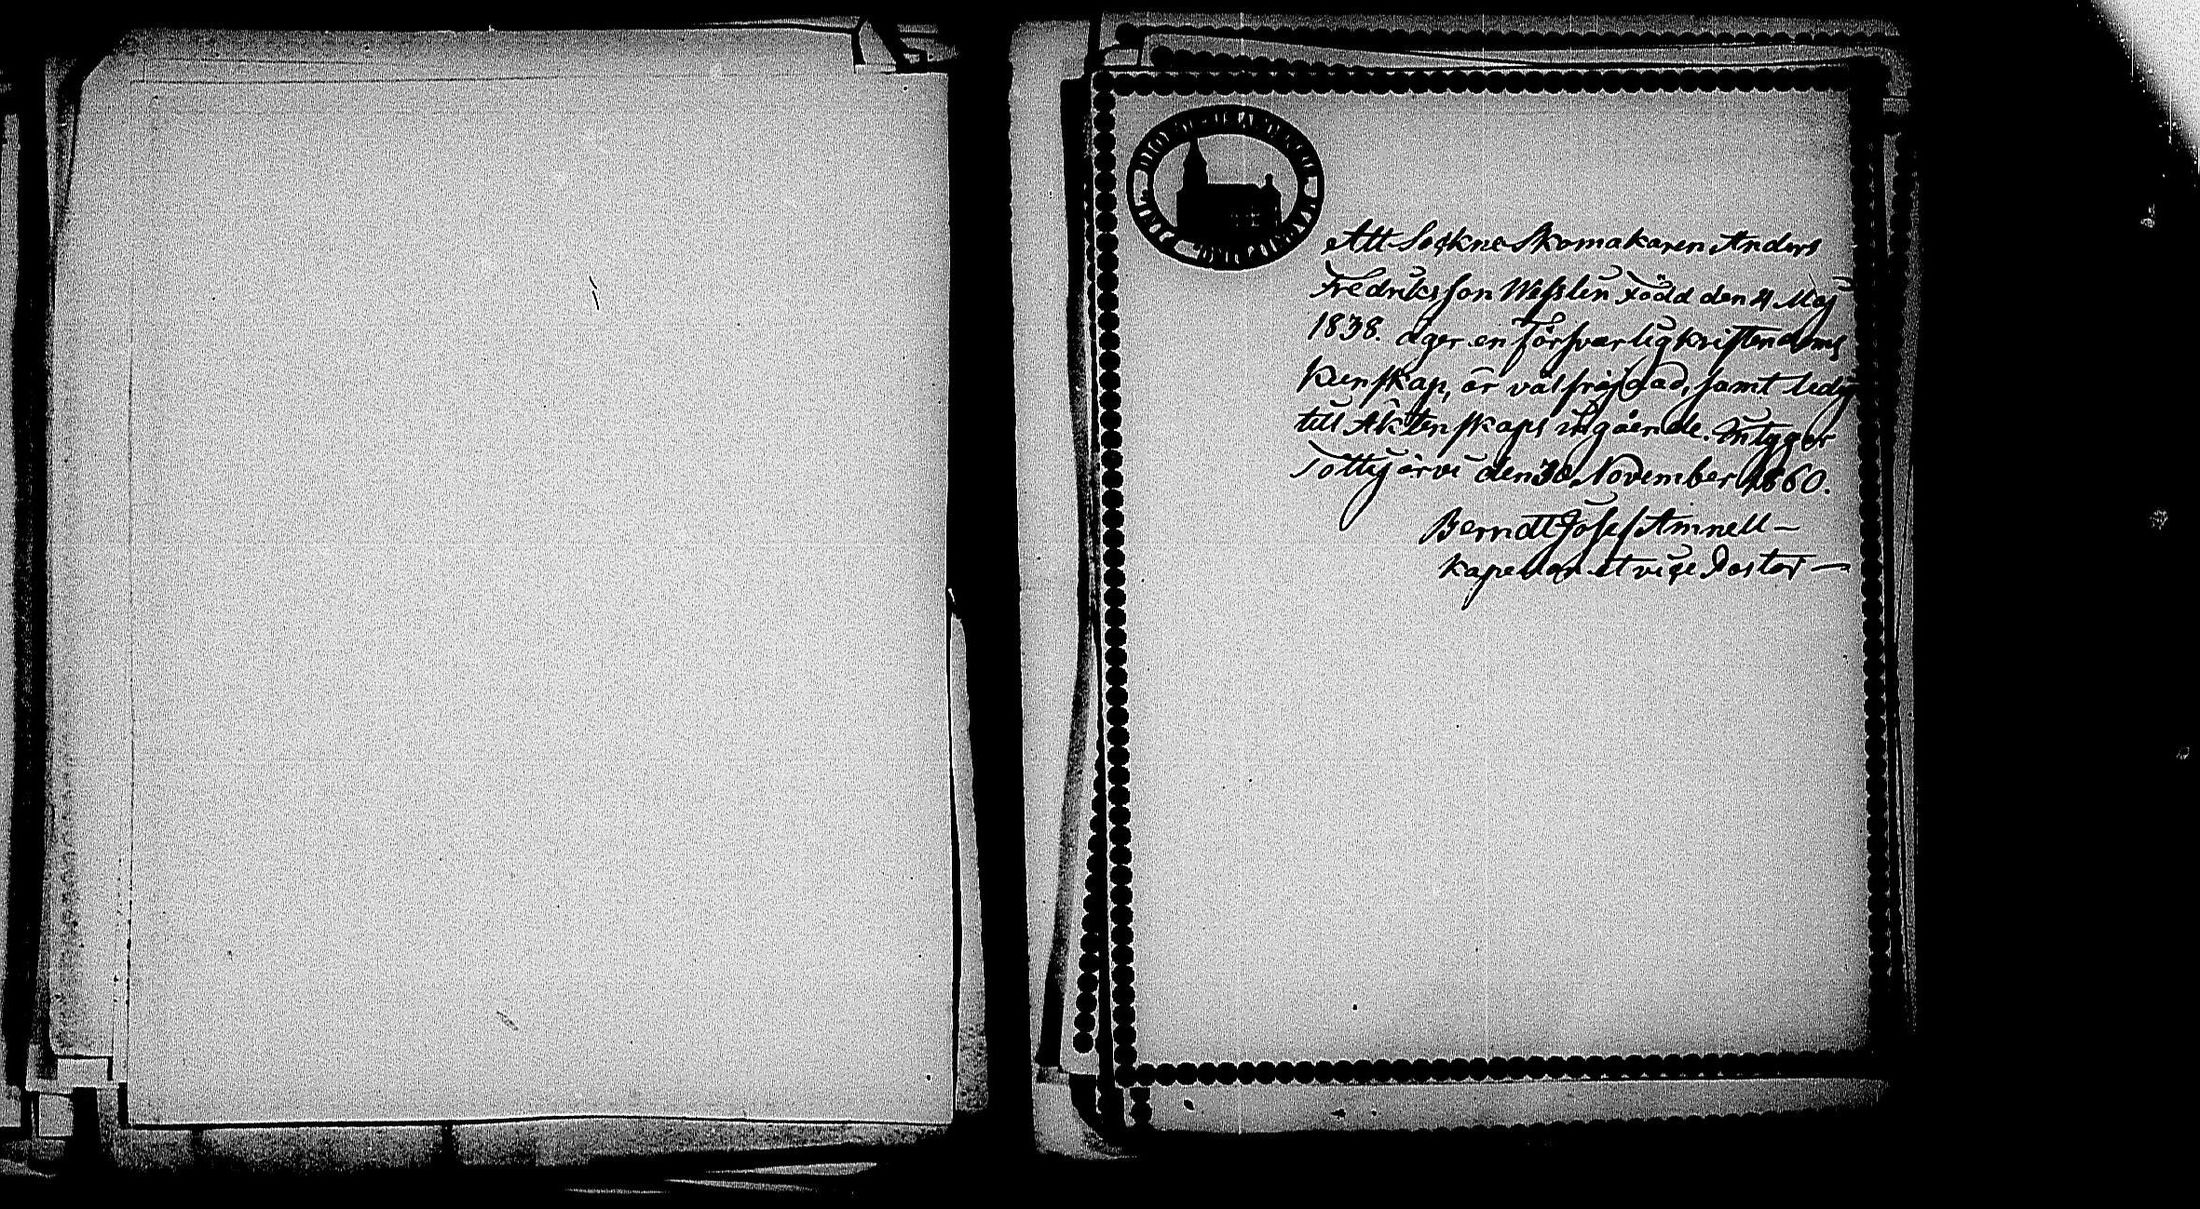 Att Sockne Skomakaren Anders
Fredriksson Wesslen Född den 4 Maj
1838. äger en försvarlig kristendoms
kunskap, är välfrejdad, samt ledig
till Äktenskaps ingående. Intygar
Tottijärvi den 30 November 1860.
Berndt Josef Aminell
Kapellan etvice Pastor